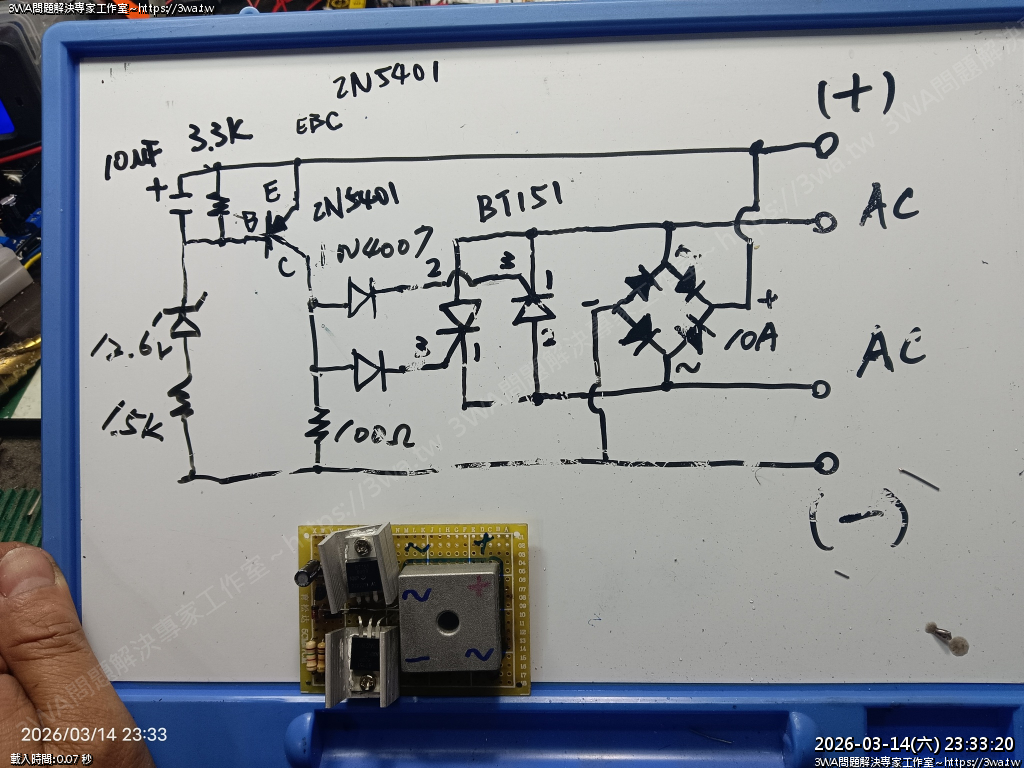 3WA問題解決專家工作室~https://3wa.tw
3WA問題解決專家工作室~https://3wa.tw
2N5401
(+)
10uF
3.3K
EBC
+
E
B
2N5401
BT151
AC
C
1N4007
2
3
1
~
-
+
12.6V
3
1
2
10A
AC
~
1.5K
100Ω
(-)
~
+
~
+
-
~
3WA問題解決專家工作室~https://3wa.tw
2026/03/14 23:33
載入時間:0.07 秒
2026-03-14(六) 23:33:20
3WA問題解決專家工作室~https://3wa.tw